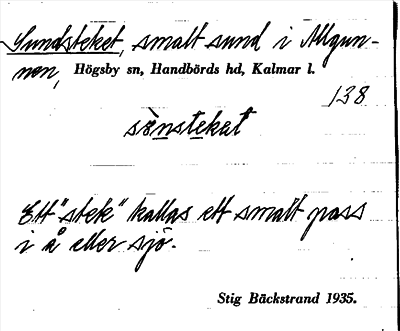 Sundsteket, smalt sund i Allgun-
nen, Högsby sn, Handbörds hd, Kalmar l.
138
sònstekat
Ett "stek" kallas ett smalt pass
i å eller sjö.
Stig Bäckstrand 1935.